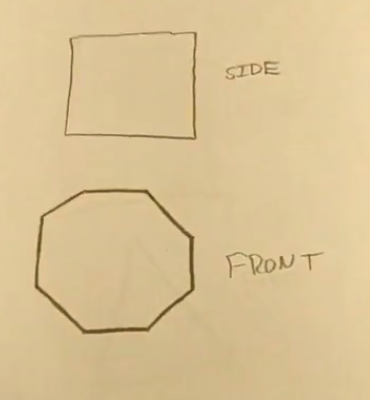 SIDE
FRONT